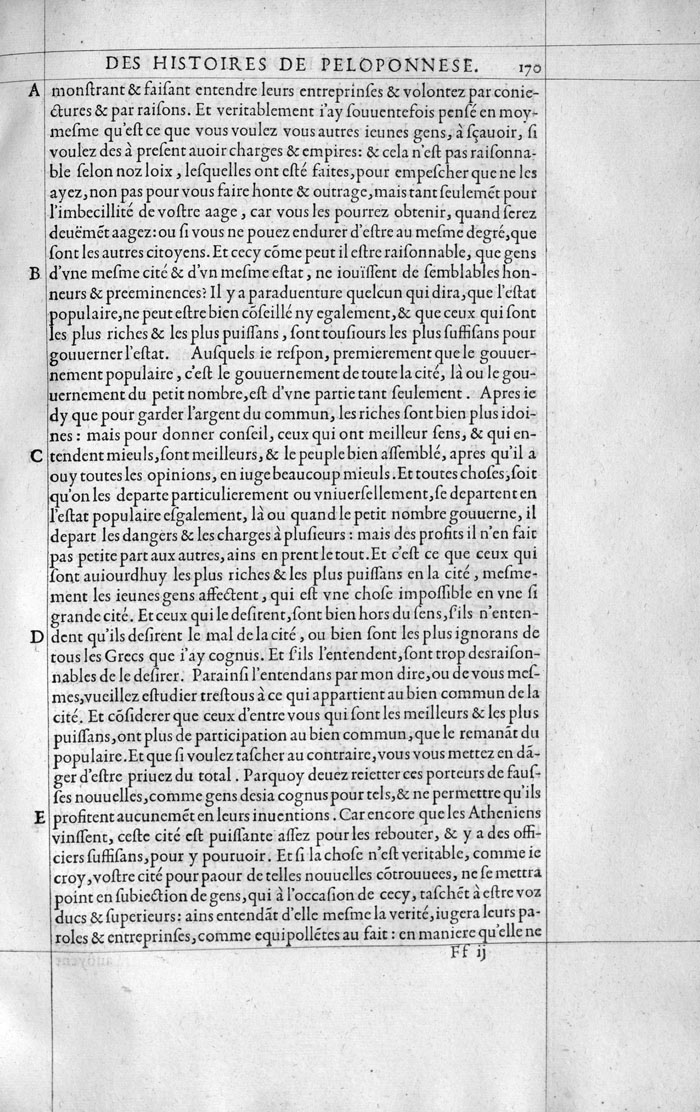 DES HISTOIRES DE PELOPONNESE. 170
A monſtrant & faiſant entendre leurs entreprinſes & volontez par conie-
ctures & par raiſons. Et veritablement i'ay ſouuentefois penſé en moy-
meſme qu'eſt ce que vous voulez vous autres ieunes gens, à ſçauoir, ſi
voulez des à preſent auoir charges & empires: & cela n'eſt pas raiſonna-
ble ſelon noz loix, leſquelles ont eſté faites, pour empeſcher que ne les
ayez, non pas pour vous faire honte & outrage, mais tant ſeulemẽt pour
l'imbecillité de voſtre aage, car vous les pourrez obtenir, quand ſerez
deuëmẽt aagez: ou ſi vous ne pouez endurer d'eſtre au meſme degré, que
ſont les autres citoyens. Et cecy cõme peut il eſtre raiſonnable, que gens
B d'vne meſme cité & d'vn meſme eſtat, ne iouïſſent de ſemblables hon-
neurs & preeminences? Il y a paraduenture quelcun qui dira, que l'eſtat
populaire, ne peut eſtre bien cõſeillé ny egalement, & que ceux qui ſont
les plus riches & les plus puiſſans, ſont touſiours les plus ſuffiſans pour
gouuerner l'eſtat. Auſquels ie reſpon, premierement que le gouuer-
nement populaire, c'eſt le gouuernement de toute la cité, là ou le gou-
uernement du petit nombre, eſt d'vne partie tant ſeulement. Apres ie
dy que pour garder l'argent du commun, les riches ſont bien plus idoi-
nes: mais pour donner conſeil, ceux qui ont meilleur ſens, & qui en-
C tendent mieuls, ſont meilleurs, & le peuple bien aſſemblé, après qu'il a
ouy toutes les opinions, en iuge beaucoup mieuls. Et toutes choſes, ſoit
qu'on les departe particulierement ou vniuerſellement, ſe departent en
l'eſtat populaire eſgalement, là ou quand le petit nombre gouuerne, il
depart les dangers & les charges à pluſieurs: mais des profits il n'en fait
pas petite part aux autres, ains en prent le tout. Et c'eſt ce que ceux qui
ſont auiourdhuy les plus riches & les plus puiſſans en la cité, meſme-
ment les ieunes gens affectent, qui eſt vne choſe impoſſible en vne ſi
grande cité. Et ceux qui le deſirent, ſont bien hors du ſens, ſ'ils n'enten-
D dent qu'ils deſirent le mal de la cité, ou bien ſont les plus ignorans de
tous les Grecs que i'ay cognus. Et ſ'ils l'entendent, ſont trop desraiſon-
nables de le deſirer. Parainſi l'entendans par mon dire, ou de vous meſ-
mes, vueillez eſtudier treſtous à ce qui appartient au bien commun de la
cité. Et cõſiderer que ceux d'entre vous qui ſont les meilleurs & les plus
puiſſans, ont plus de participation au bien commun, que le remanãt du
populaire. Et que ſi voulez taſcher au contraire, vous vous mettez en dã-
ger d'eſtre priuez du total. Parquoy deuez reietter ces porteurs de fauſ-
ſes nouuelles, comme gens desia cognus pour tels, & ne permettre qu'ils
E profitent aucunemẽt en leurs inuentions. Car encore que les Atheniens
vinſſent, ceſte cité eſt puiſſante aſſez pour les rebouter, & y a des offi-
ciers ſuffiſans, pour y pouruoir. Et ſi la choſe n'eſt veritable, comme ie
croy, voſtre cité pour paour de telles nouuelles cõtrouuees, ne ſe mettra
point en ſubiection de gens, qui à l'occaſion de cecy, taſchẽt à eſtre voz
ducs & ſuperieurs: ains entendãt d'elle meſme la verité, iugera leurs pa-
roles & entreprinſes, comme equipollẽtes au fait: en maniere qu'elle ne
Ff ij